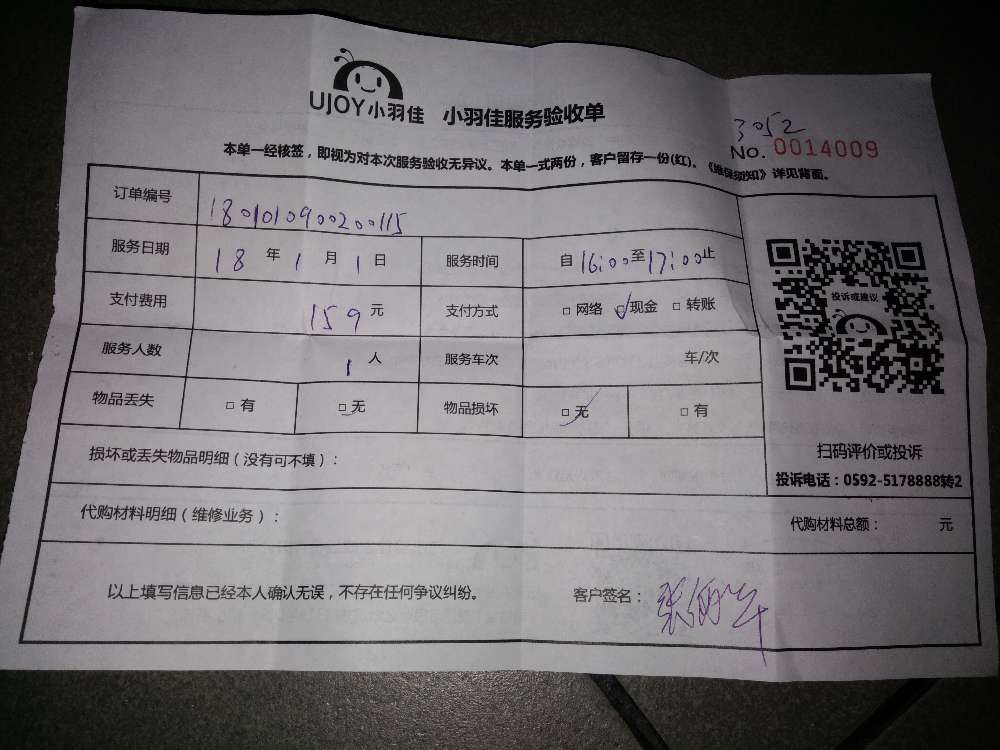 UJOY小羽佳 小羽佳服务验收单
3052
NO. 0014009
本单一经核签，即视为对本次服务验收无异议。本单一式两份，客户留存一份(红)。《维保须知》详见背面。
订单编号 180101090020011 5
服务日期 18 年 1 月 1 日 服务时间 自 16:00 至 17:00 止
支付费用 159 元 支付方式 □ 网络 ☑ 现金 □ 转账
服务人数 1 人 服务车次 车/次
物品丢失 □ 有 ☑ 无 物品损坏 ☑ 无 □ 有
投诉或建议
扫码评价或投诉
投诉电话：0592-5178888转2
损坏或丢失物品明细（没有可不填）：
代购材料明细（维修业务）： 代购材料总额： 元
以上填写信息已经本人确认无误，不存在任何争议纠纷。 客户签名：